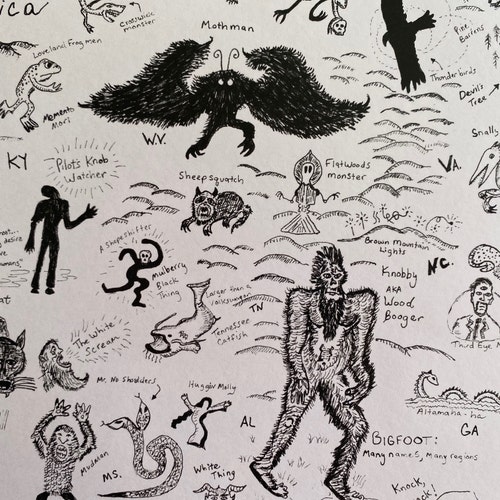 ica
Crosswick
monster
Mothman
Loveland Frogmen
Pine
Barrens
Thunderbirds
Devil's
Tree
Memento
Mori
W.V.
KY
Pilot's Knob
Watcher
Sheepsquatch
Flatwoods
monster
VA.
Snall
desire
humans"
A shapeshifter
Mulberry
Black
Thing
Larger than a
railksunner
TN
Tennessee
Catfish
Brown Mountain
Lights
NC.
Knobby
AKA
Wood
Booger
at
The White
Scream
Third Eye M
Mr. No Shoulders
Huggin' Molly
Mudman
MS.
White
Thing
AL
Altamaha-ha
GA
BIGFOOT:
Many names, many regions
Knock,